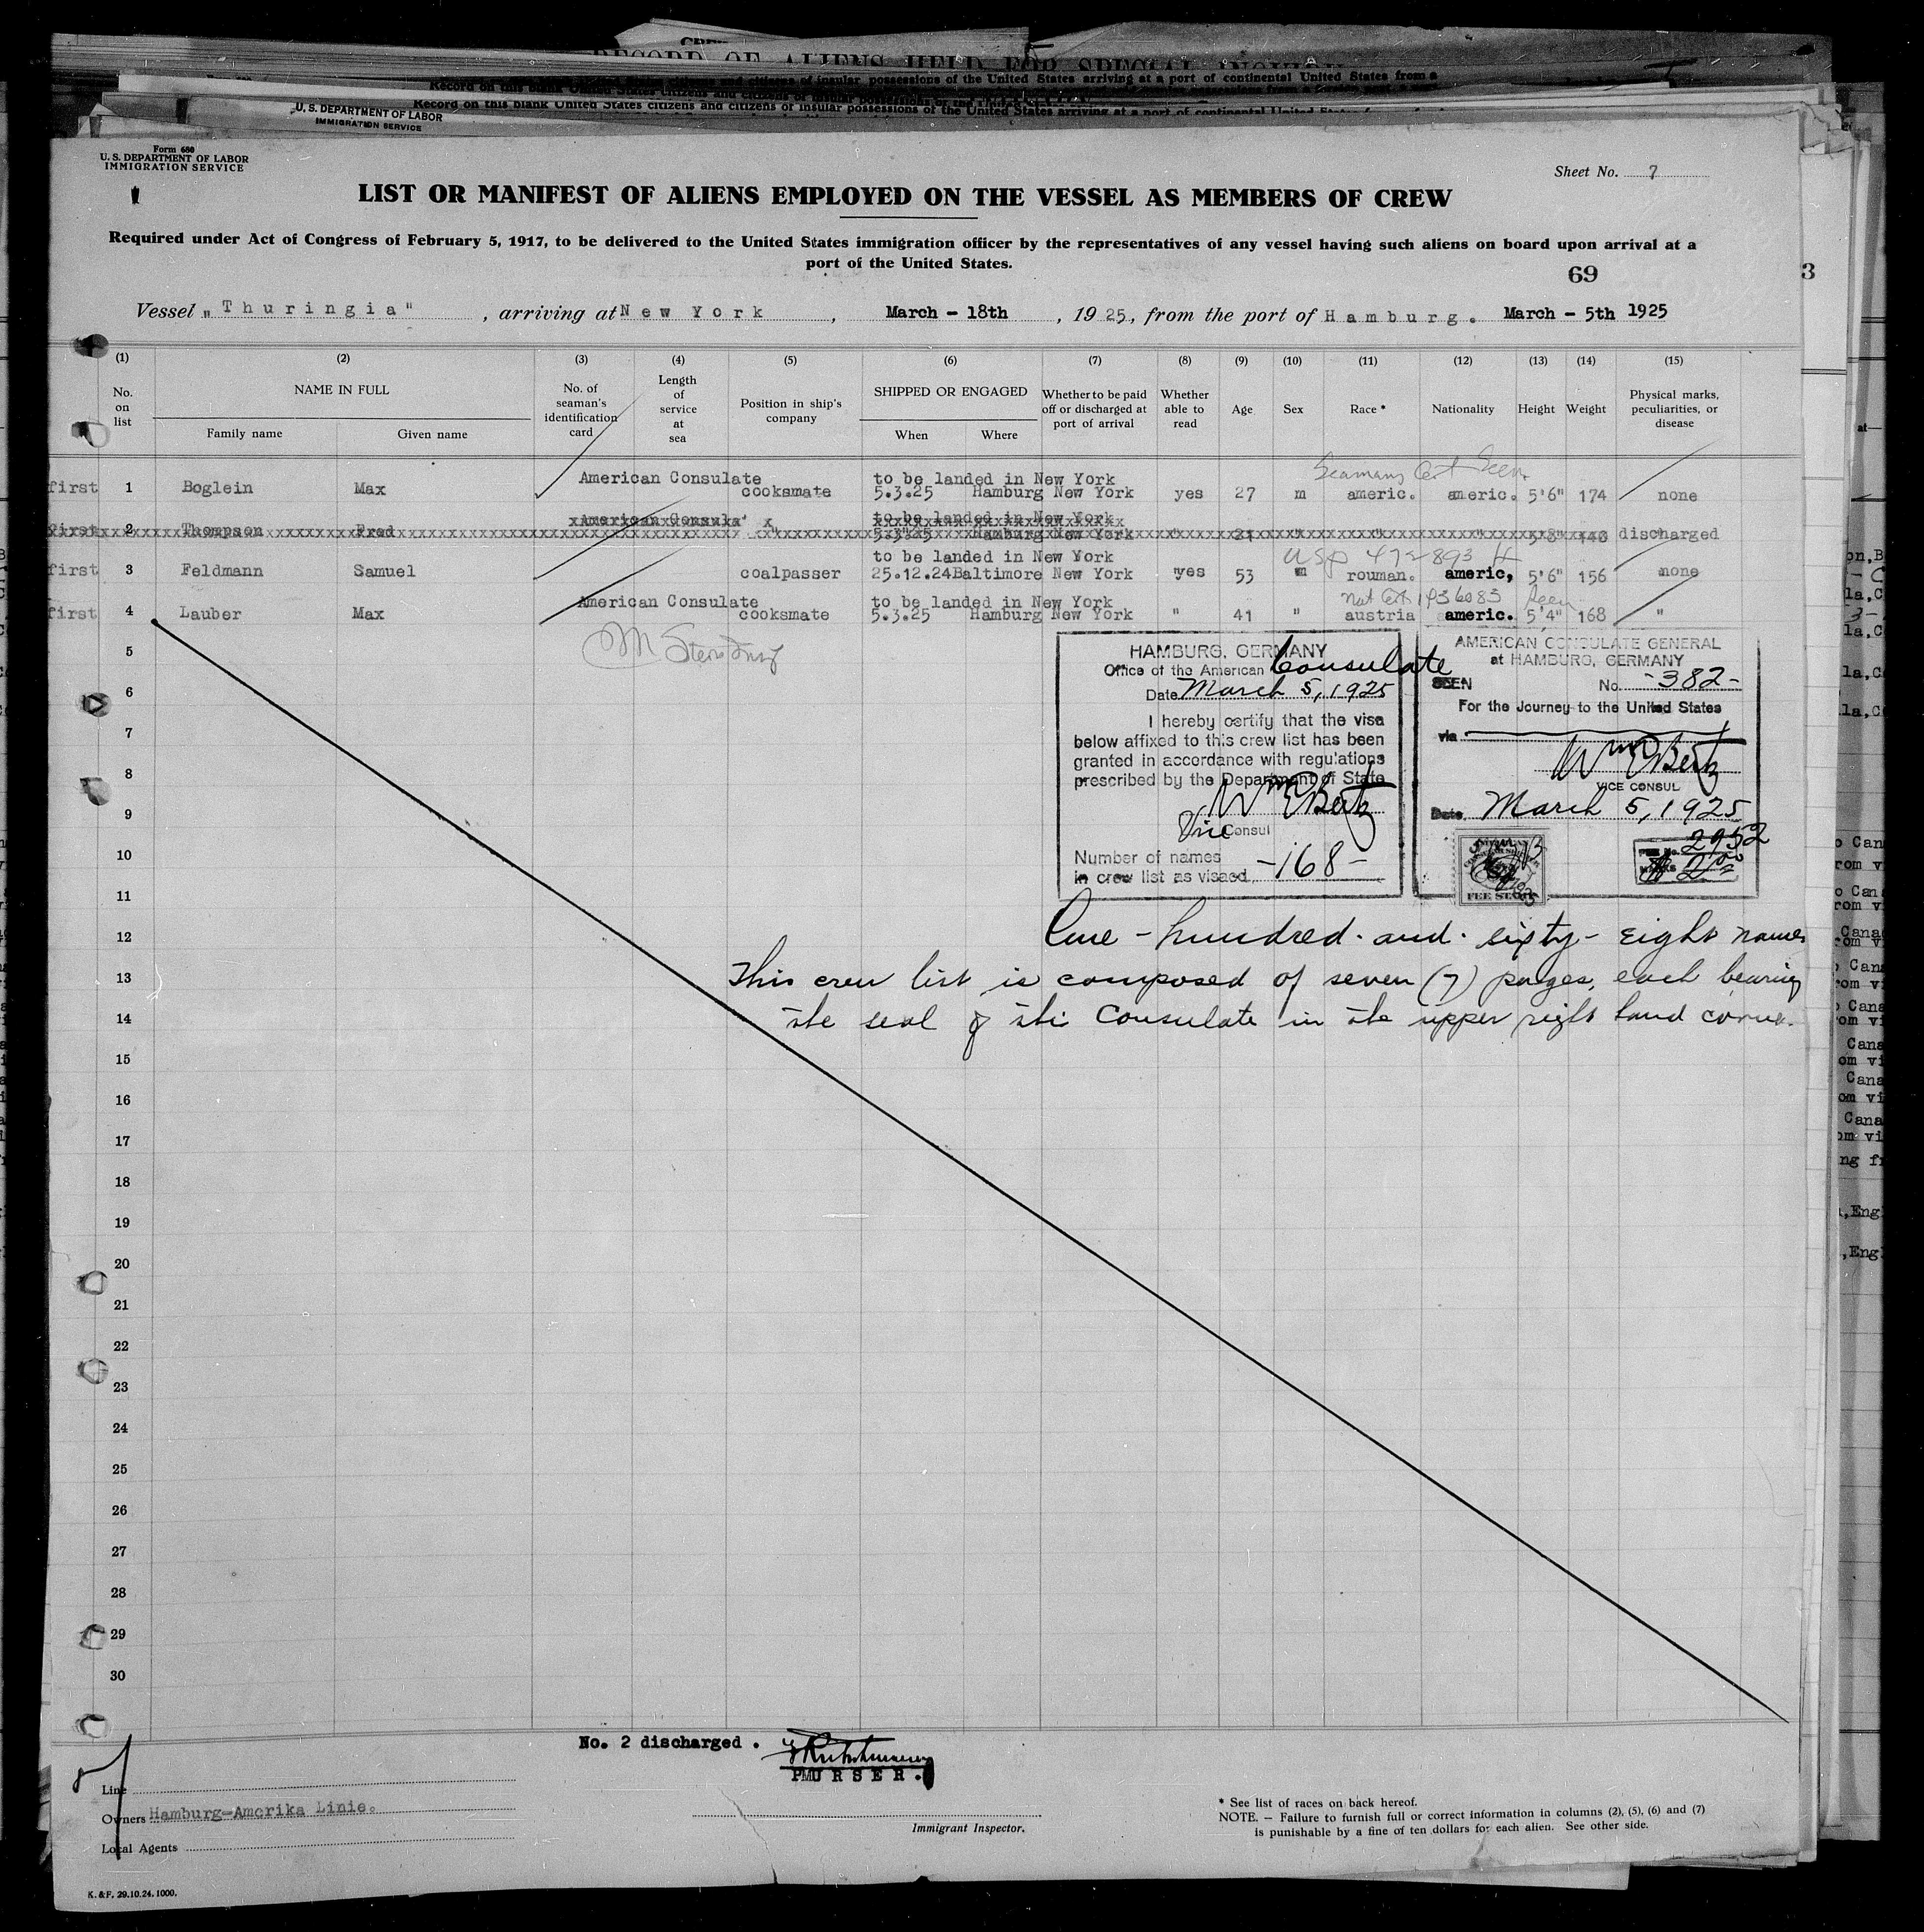 RECORD OF ALIENS HELD FOR SPECIAL INQUIRY
Record on this blank United States citizens and citizens of insular possessions of the United States arriving at a port of continental United States from a
Record on this blank United States citizens and citizens of insular possessions of the United States arriving at a port of continental United States
U. S. DEPARTMENT OF LABOR
IMMIGRATION SERVICE
Form 680
U. S. DEPARTMENT OF LABOR
IMMIGRATION SERVICE
Sheet No. 7
LIST OR MANIFEST OF ALIENS EMPLOYED ON THE VESSEL AS MEMBERS OF CREW
Required under Act of Congress of February 5, 1917, to be delivered to the United States immigration officer by the representatives of any vessel having such aliens on board upon arrival at a
port of the United States.
69
3
Vessel „Thuringia", arriving at New York, March - 18th, 1925, from the port of Hamburg. March - 5th 1925
(1) (2) (3) (4) (5) (6) (7) (8) (9) (10) (11) (12) (13) (14) (15)
No. on list NAME IN FULL Family name Given name No. of seaman's identification card Length of service at sea Position in ship's company SHIPPED OR ENGAGED When Where Whether to be paid off or discharged at port of arrival Whether able to read Age Sex Race * Nationality Height Weight Physical marks, peculiarities, or disease
Seamans Cert Seen
American Consulate to be landed in New York
first 1 Boglein Max cooksmate 5.3.25 Hamburg New York yes 27 m americ. americ. 5'6" 174 none
American Consula' x to be landed in New York
first 2 Thompson Fred " 5.3.25 Hamburg New York " 21 " " " 5'8" 146 discharged
to be landed in New York USP 472893 H
first 3 Feldmann Samuel coalpasser 25.12.24 Baltimore New York yes 53 m rouman. americ, 5'6" 156 none
American Consulate to be landed in New York Nat Cert 1936083 Seen
first 4 Lauber Max cooksmate 5.3.25 Hamburg New York " 41 " austria americ. 5'4" 168 "
5
6
7
8
9
10
11
12
13
14
15
16
17
18
19
20
21
22
23
24
25
26
27
28
29
30
HAMBURG, GERMANY
Office of the American Consulate
Date March 5, 1925
I hereby certify that the visa
below affixed to this crew list has been
granted in accordance with regulations
prescribed by the Department of State
Wm E Bertz
Vice Consul
Number of names
in crew list as visaed, -168-
AMERICAN CONSULATE GENERAL
at HAMBURG, GERMANY
SEEN No. -382-
For the Journey to the United States
via
Wm E Bertz
VICE CONSUL
Date March 5, 1925
FEE No. 2952
FEE STAMP
One-hundred-and-sixty-eight names
This crew list is composed of seven (7) pages, each bearing
the seal of this Consulate in the upper right hand corner.
No. 2 discharged.
PURSER.
Line
Owners Hamburg-Amerika Linie.
Local Agents
Immigrant Inspector.
* See list of races on back hereof.
NOTE. — Failure to furnish full or correct information in columns (2), (5), (6) and (7)
is punishable by a fine of ten dollars for each alien. See other side.
K. & F. 29.10.24. 1000.